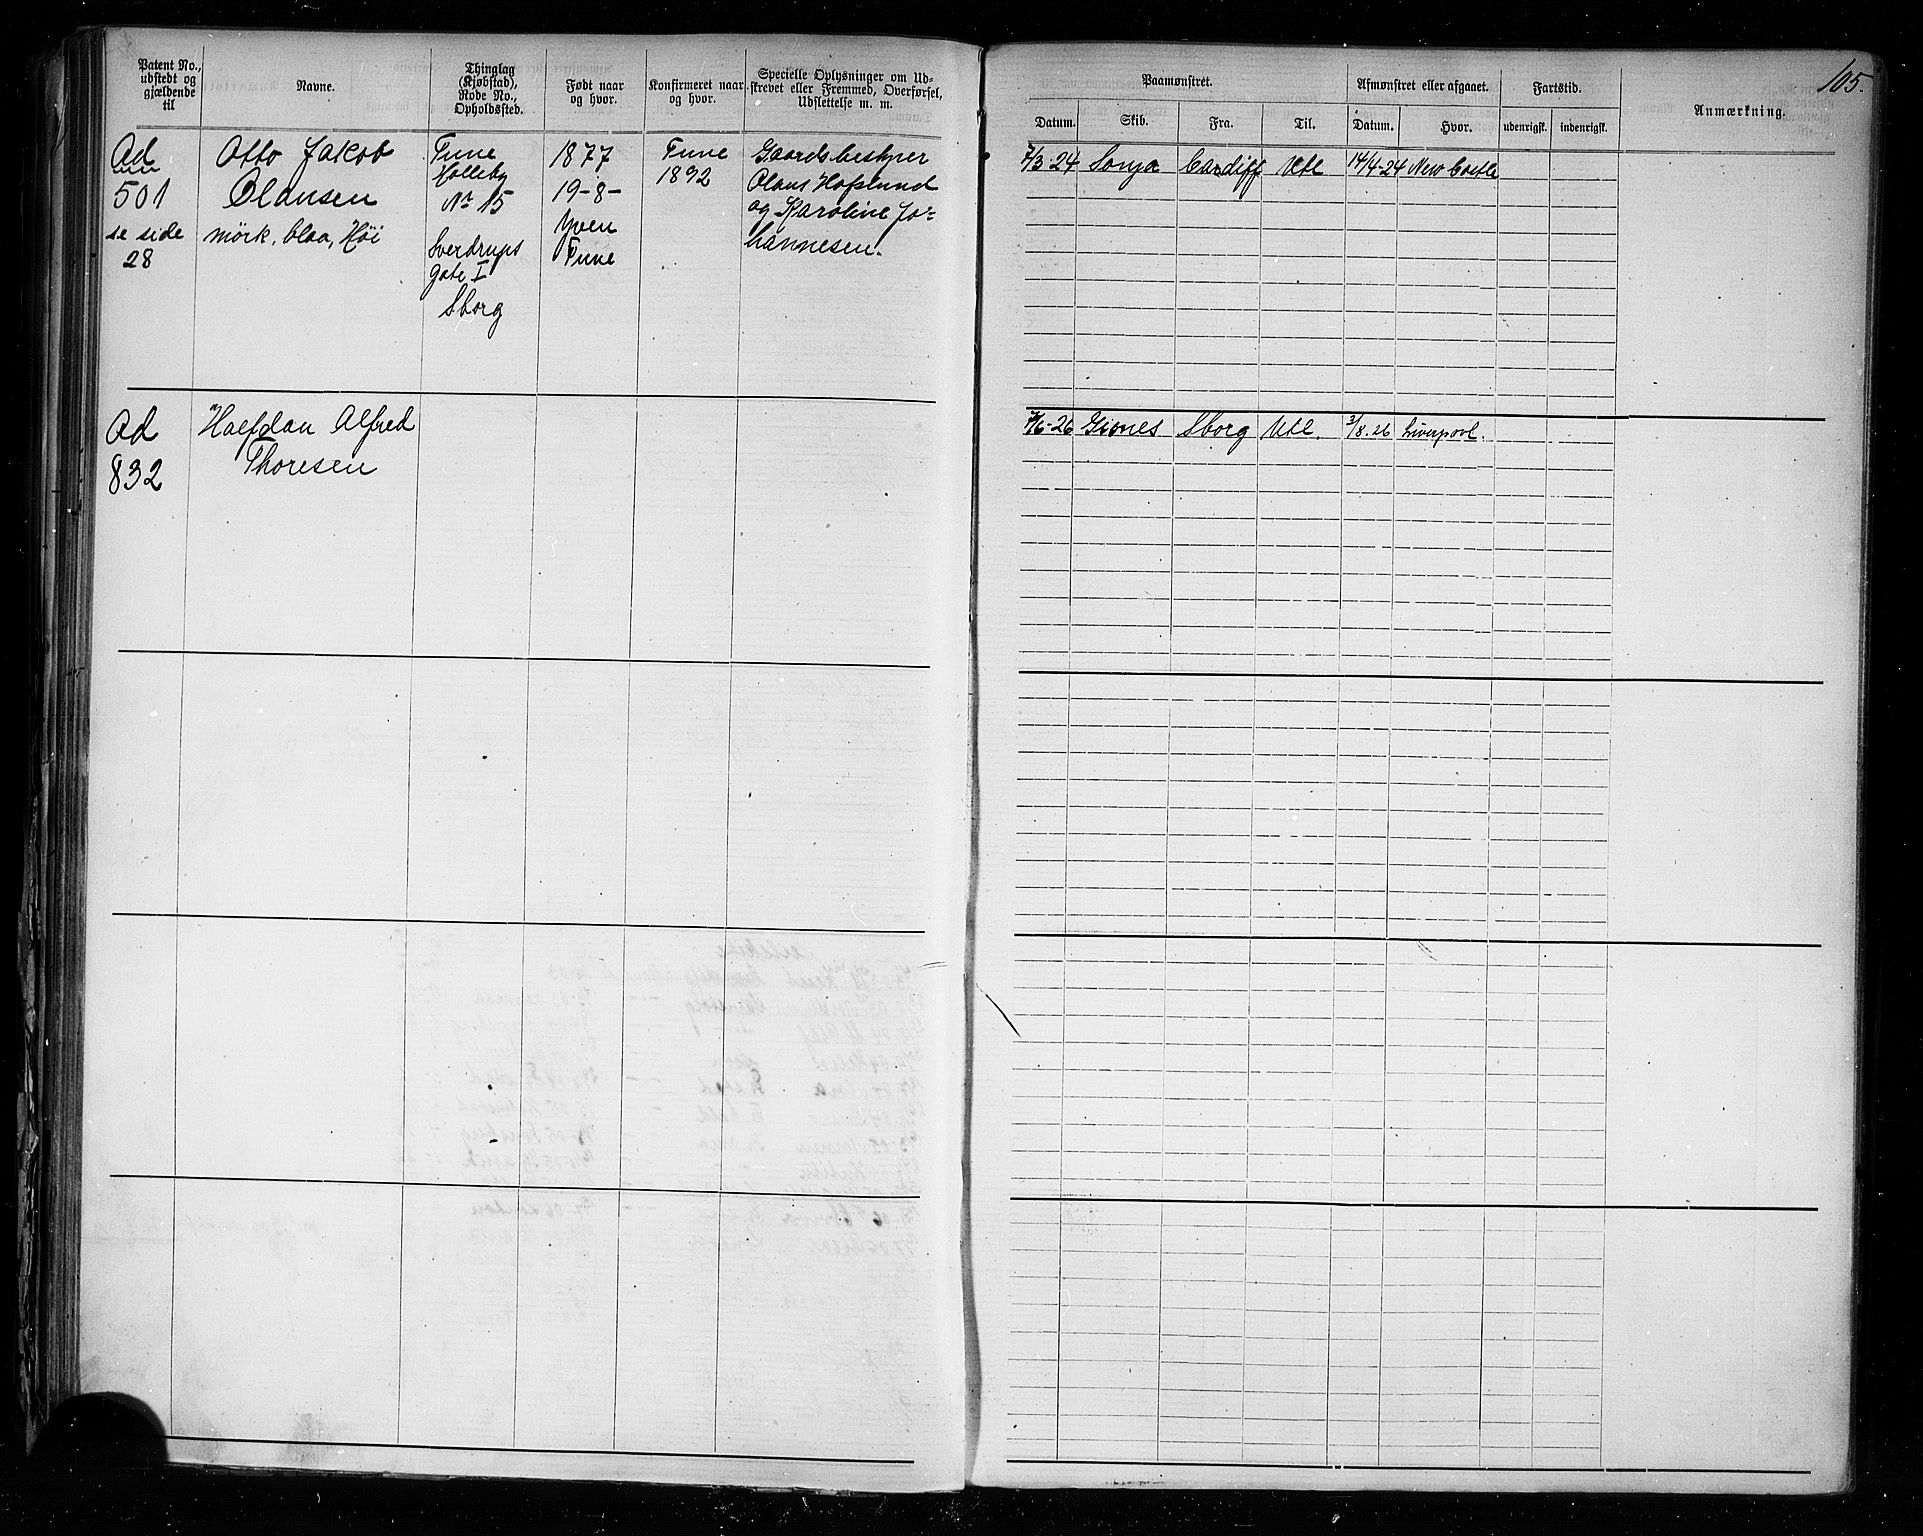 105.
Patent No., udstedt og gjældende til
Navne.
Thinglag (Kjøbstad), Rode No., Opholdssted.
Født naar og hvor.
Konfirmeret naar og hvor.
Specielle Oplysninger om Udstrevet eller Fremmed, Overførsel, Udslettelse m. m.
Paamønstret.
Afmønstret eller afgaaet.
Fartstid.
Anmærkning.
Datum. Skib. Fra. Til. Datum. Hvor. udenrigsk. indenrigsk.
Ad
501
se side
28
Otto Jakob
Olausen
mörk, blaa, Høi
Tune
Holleby
No 15
Sverdrups
gate I
Sborg
1877
19-8-
Yven
Tune
Tune
1892
Gaardsbestyrer
Olaus Hafslund
og Karoline Jo-
hannesen.
7/3-24 Sonja Cardiff Utl 14/4-24 New Castle
Ad
832
Halfdan Alfred
Thoresen
7/6-26 Gisnes Sborg Utl. 3/8.26 Liverpool.